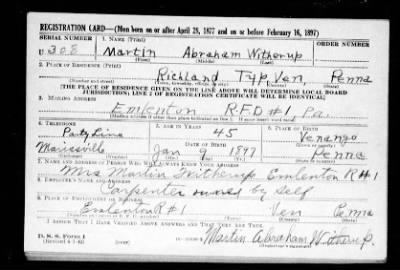 REGISTRATION CARD—(Men born on or after April 28, 1877 and on or before February 16, 1897)
SERIAL NUMBER 1. NAME (Print)
U 308 Martin Abraham Witherup
(First) (Middle) (Last)
2. PLACE OF RESIDENCE (Print)
Richland Twp, Ven, Penna
(Number and street) (Town, township, village, or city) (County) (State)
[THE PLACE OF RESIDENCE GIVEN ON THE LINE ABOVE WILL DETERMINE LOCAL BOARD
JURISDICTION; LINE 2 OF REGISTRATION CERTIFICATE WILL BE IDENTICAL]
3. MAILING ADDRESS
Emlenton RFD #1 Pa.
[Mailing address if other than place indicated on line 2. If same insert word same]
4. TELEPHONE 5. AGE IN YEARS 6. PLACE OF BIRTH
Party Line 45 Venango
DATE OF BIRTH (Town or county)
Mariasville Jan 9 1897 Penna
(Exchange) (Number) (Mo.) (Day) (Yr.) (State or country)
7. NAME AND ADDRESS OF PERSON WHO WILL ALWAYS KNOW YOUR ADDRESS
Mrs Martin Witherup Emlenton R#1
8. EMPLOYER'S NAME AND ADDRESS
Carpenter owned by Self
9. PLACE OF EMPLOYMENT OR BUSINESS
Emlenton R#1 Ven Penna
(Number and street or R. F. D. number) (Town) (County) (State)
I AFFIRM THAT I HAVE VERIFIED ABOVE ANSWERS AND THAT THEY ARE TRUE.
D. S. S. Form 1
Martin Abraham Witherup
(Registrant's signature)